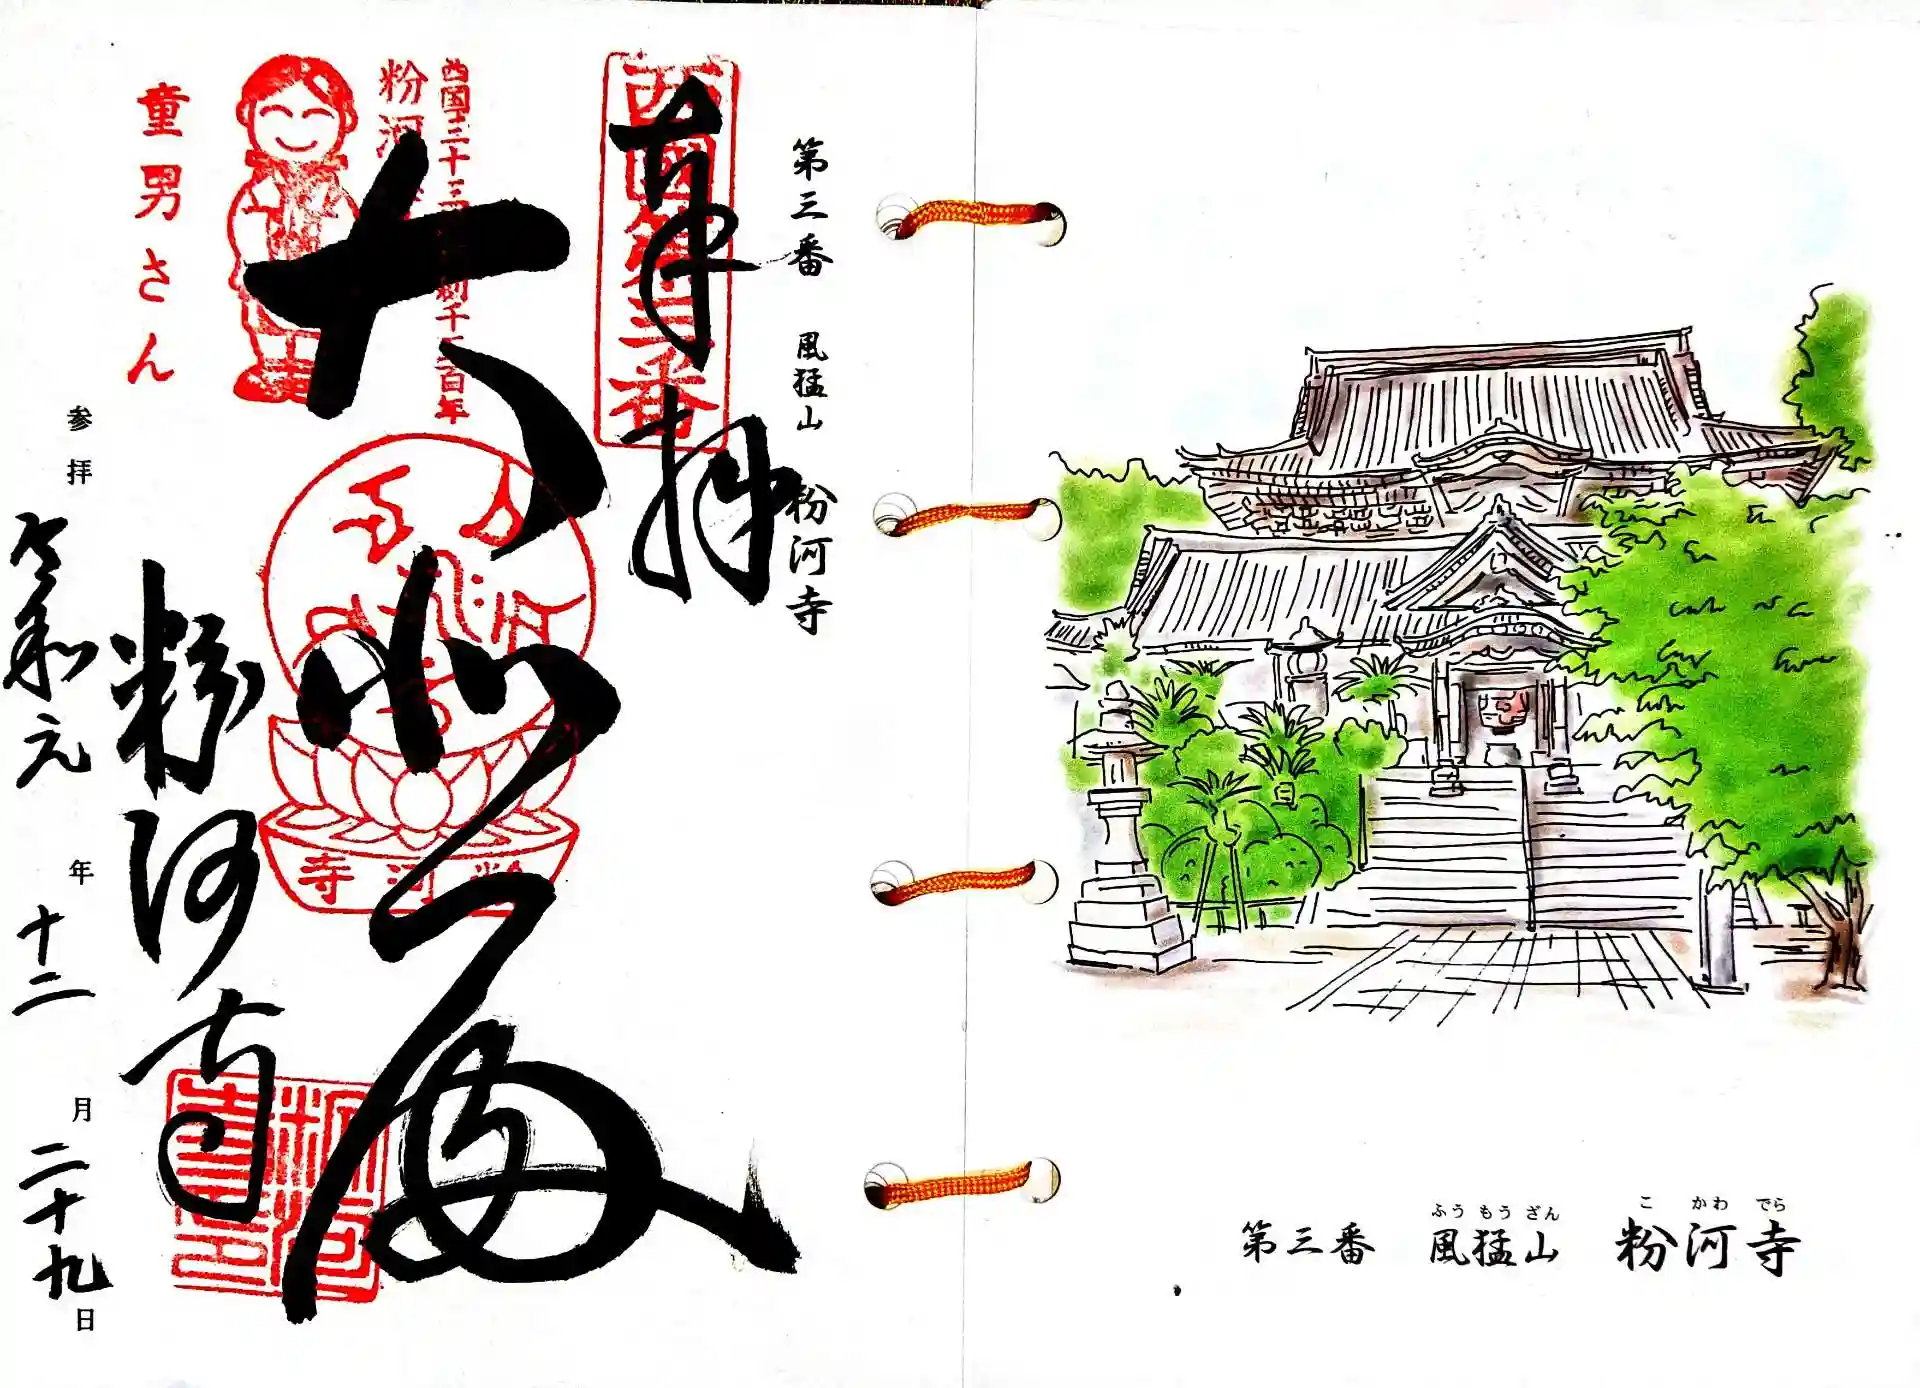 第三番 風猛山 粉河寺
奉拝
西國第三番
大悲殿
西国三十三所草創千三百年
粉河
童男さん
粉河寺
粉河寺
参拝 令和元年十二月二十九日
ふうもうざん こかわでら
第三番 風猛山 粉河寺